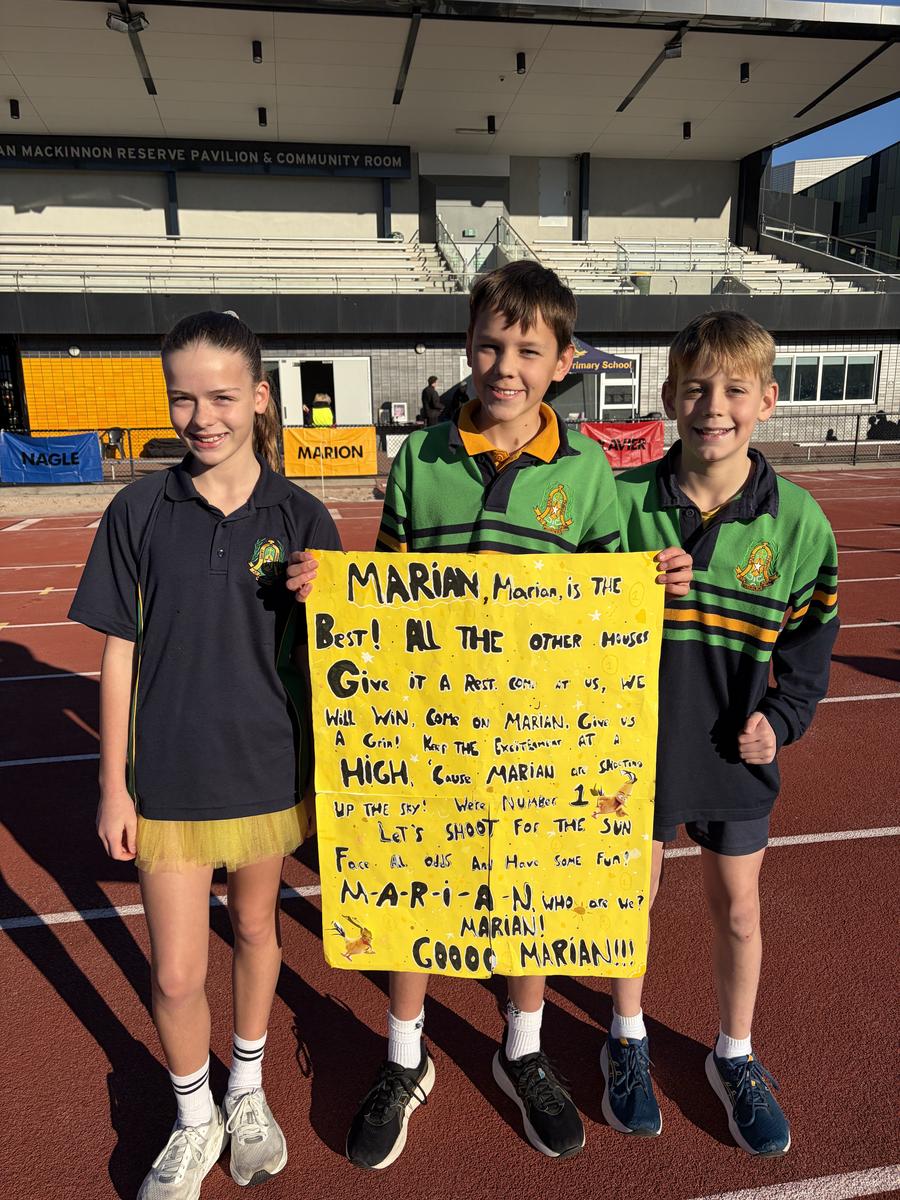 AN MACKINNON RESERVE PAVILION & COMMUNITY ROOM
Primary School
NAGLE
MARION
AVIER
MARiAN, Marian, is THE
Best! All THE OTHER HOUSES
Give iT A Rest. COME AT US, WE
Will WiN, COME ON MARiAN. Give us
A Grin! Keep THE EXCiTEMENT AT A
HiGH, 'Cause MARiAN are SHOOTiNG
UP THE SKY! Were NUMBER 1
LeT's SHOOT FOR THE SUN
FACE All ODDS AND HAVE SOME FUN!
M-A-R-i-A-N, WHO are We?
MARiAN!
GOOOO MARiAN!!!